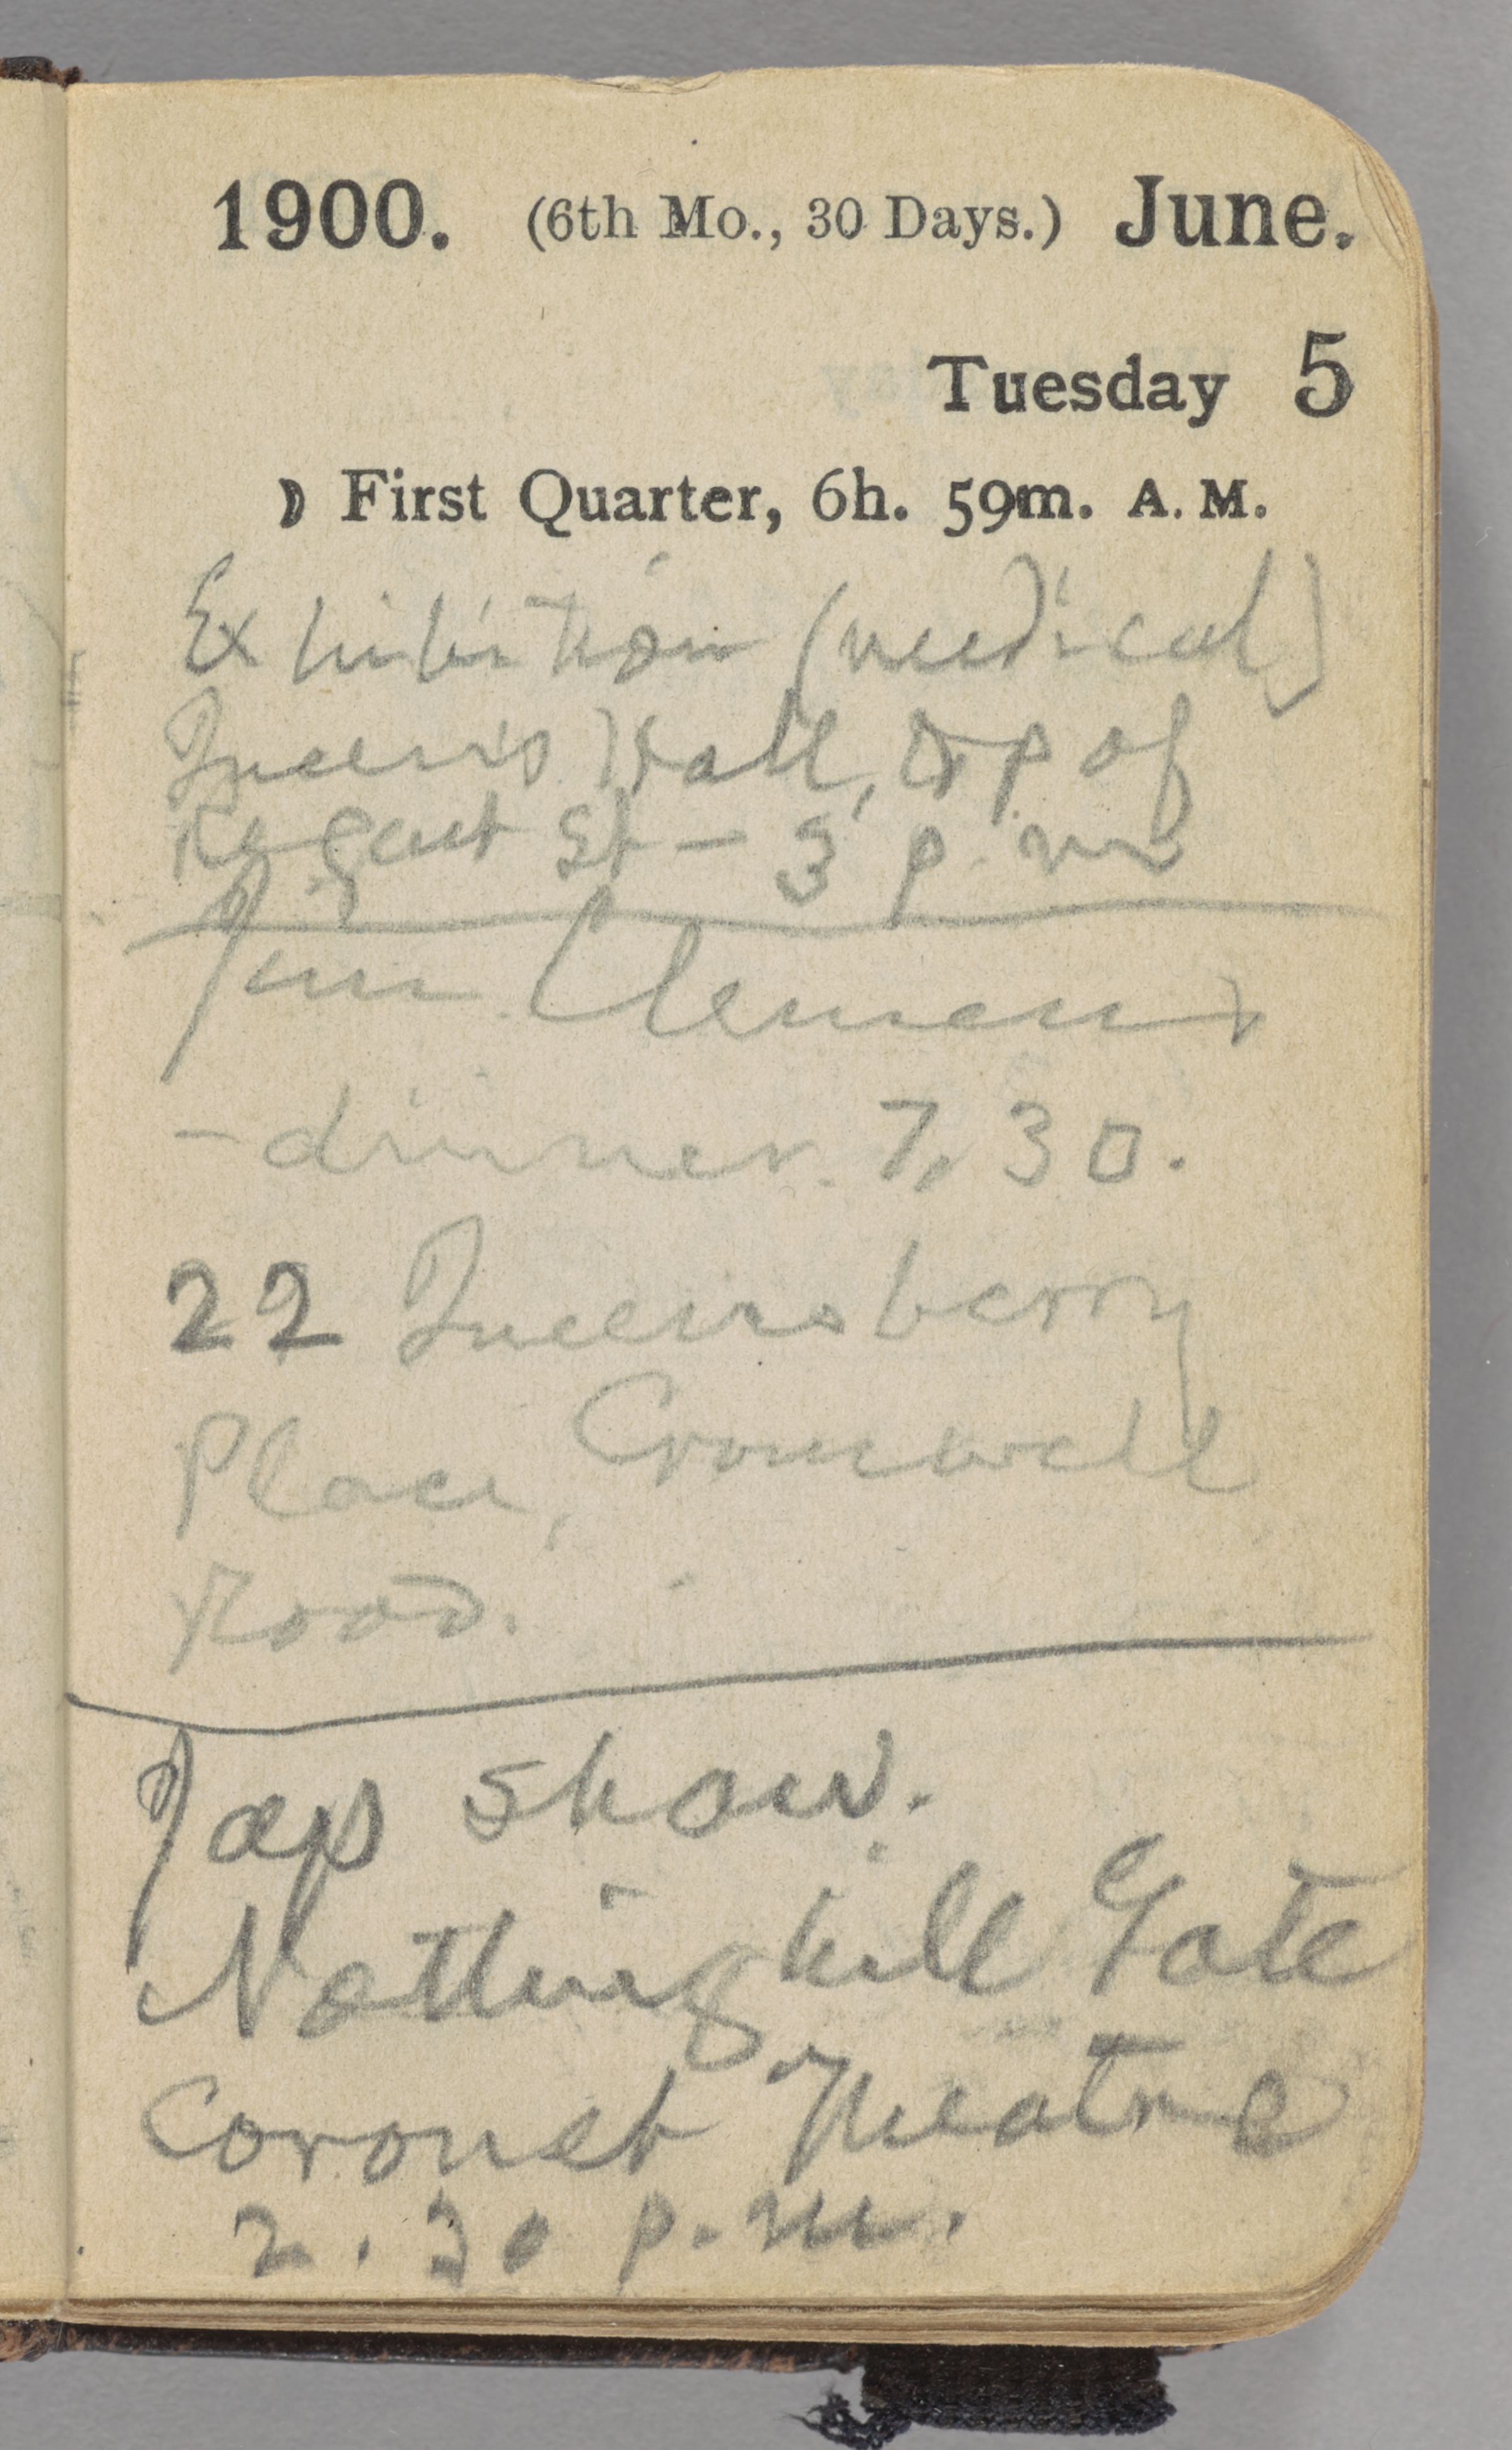 1900. (6th Mo., 30 Days.) June.
Tuesday 5
☽ First Quarter, 6h. 59m. A. M.
Exhibition (medical)
Queen's Hall, top of
Regent St — 3 p. m
Jim Clemens
- dinner. 7,30.
22 Queensberry
Place, Cromwell
Road.
Jap show.
Nottinghill Gate
Coronet Theatre
2.30 p.m.